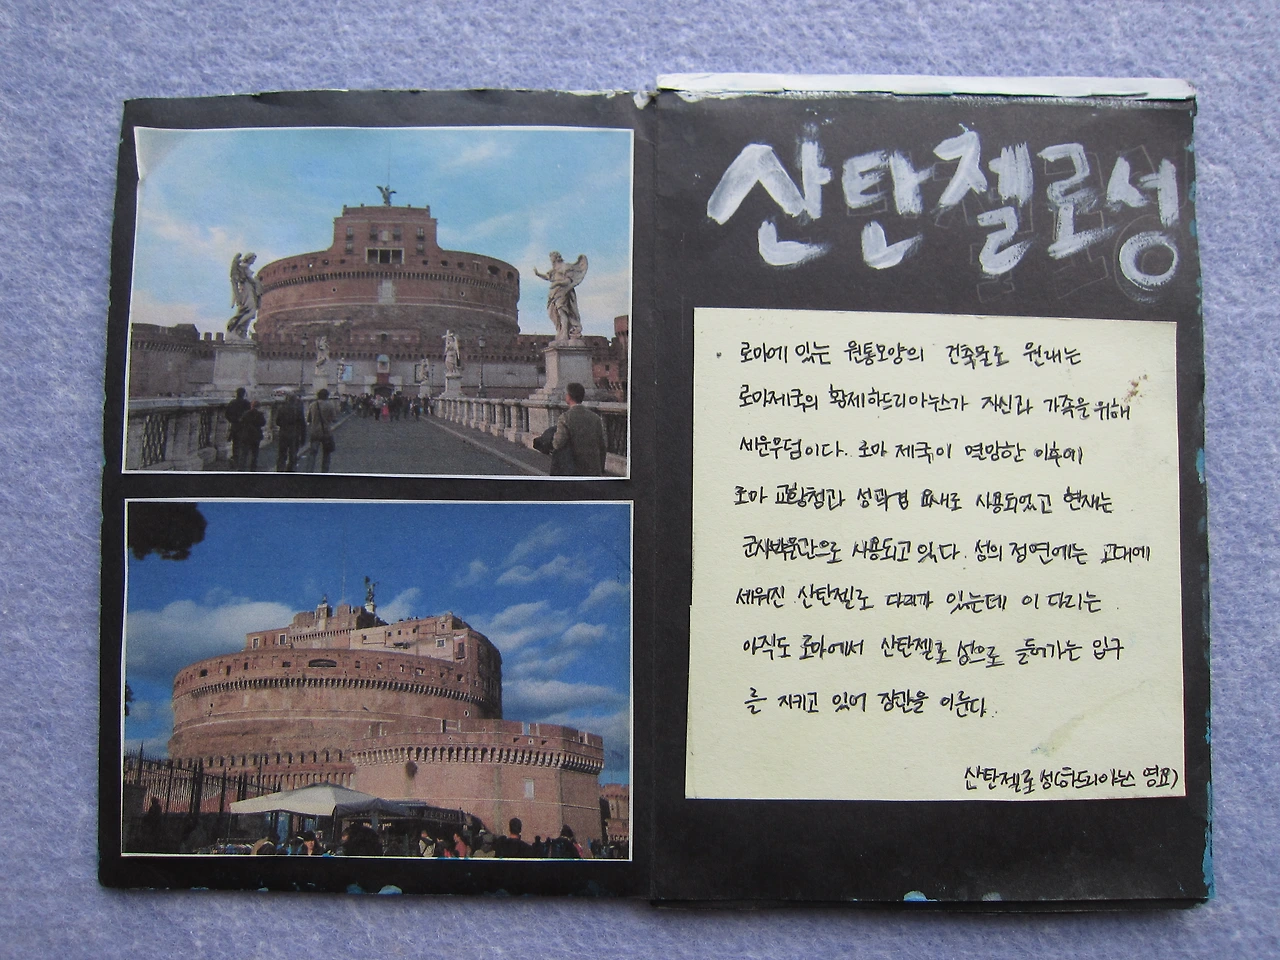 산탄젤로성
로마에 있는 원통모양의 건축물로 원래는
로마제국의 황제하드리아누스가 자신과 가족을 위해
세운무덤이다. 로마 제국이 멸망한 이후에
로마 교황청과 성곽겸 요새로 사용되었고 현재는
군사박물관으로 사용되고 있다. 성의 정면에는 고대에
세워진 산탄젤로 다리가 있는데 이 다리는
아직도 로마에서 산탄젤로 성으로 들어가는 입구
를 지키고 있어 장관을 이룬다.
산탄젤로 성(하드리아누스 영묘)